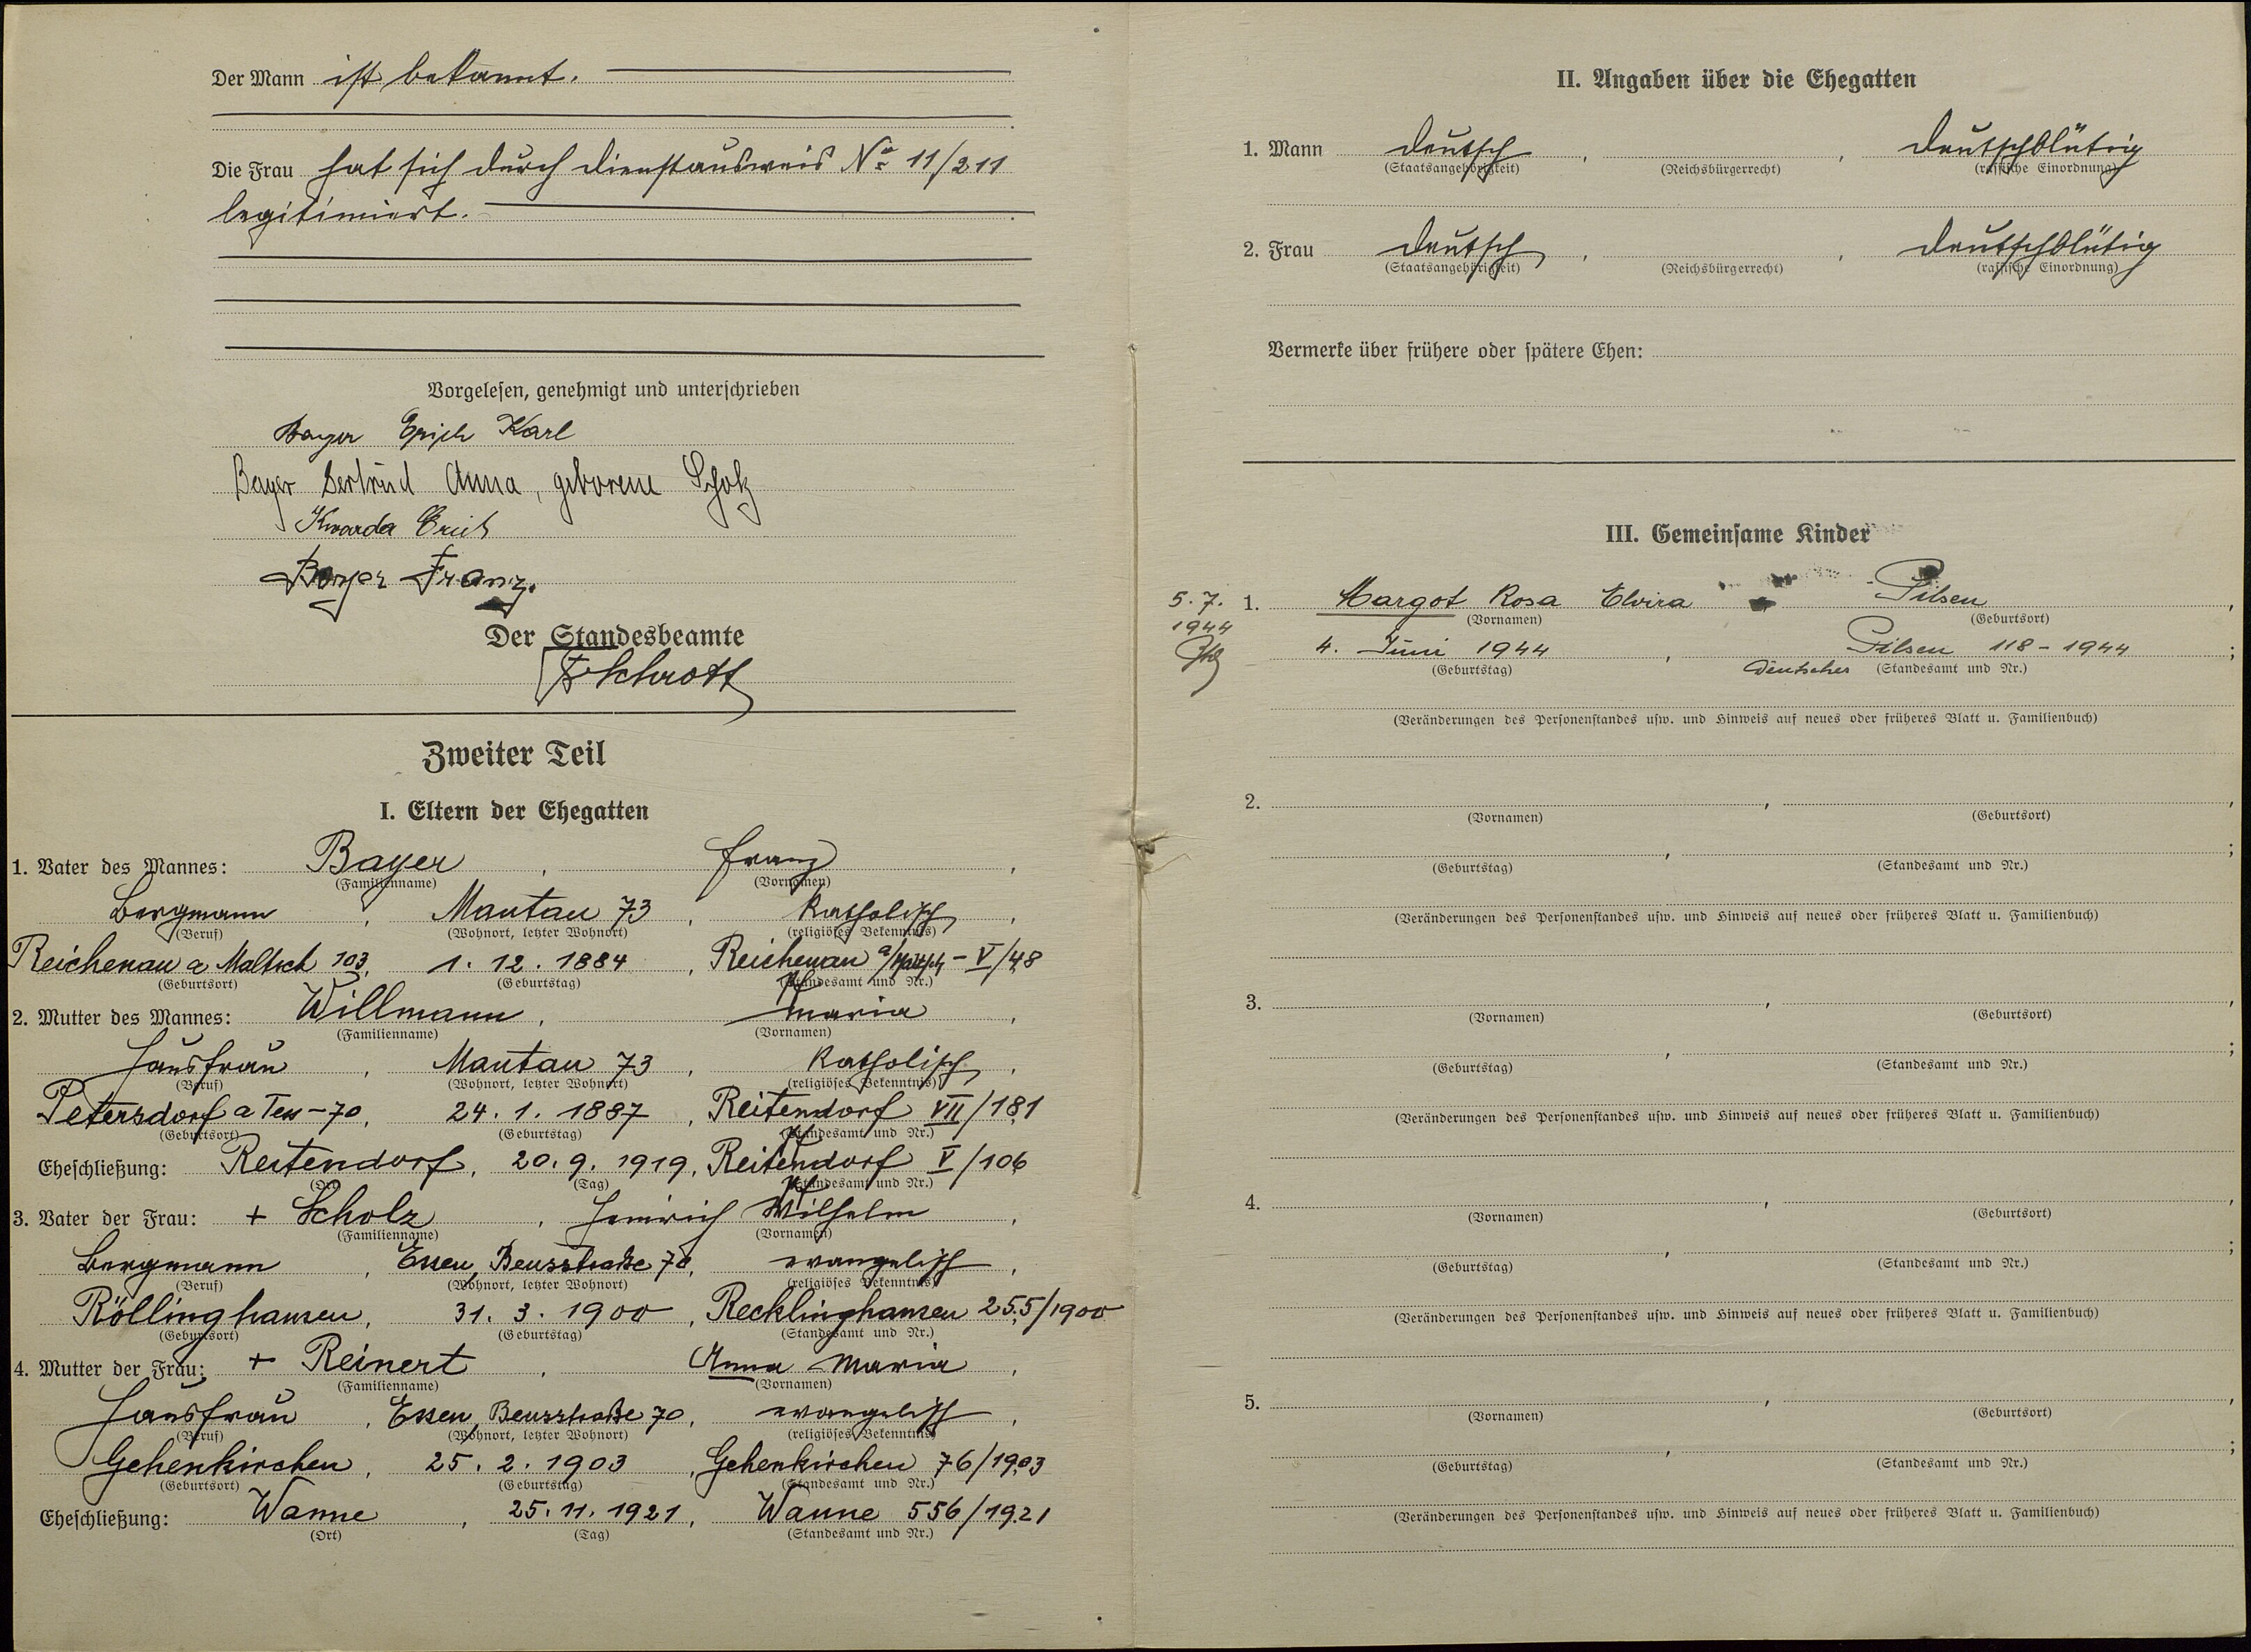 Der Mann ist bekannt.
Die Frau hat sich durch Dienstausweis No 11/211
legitimiert.
Vorgelesen, genehmigt und unterschrieben
Bayer Erich Karl
Bayer Gertrud Anna, geborene Scholz
Kwarda Erich
Bayer Franz.
Der Standesbeamte
Schrott
Zweiter Teil
I. Eltern der Ehegatten
1. Vater des Mannes: Bayer, Franz,
(Familienname) (Vornamen)
Bergmann, Mantau 73, katholisch,
(Beruf) (Wohnort, letzter Wohnort) (religiöses Bekenntnis)
Reichenau a Maltsch 103, 1.12.1884, Reichenau a/Maltsch - V/48
(Geburtsort) (Geburtstag) (Standesamt und Nr.)
2. Mutter des Mannes: Willmann, Maria,
(Familienname) (Vornamen)
Hausfrau, Mantau 73, katholisch,
(Beruf) (Wohnort, letzter Wohnort) (religiöses Bekenntnis)
Petersdorf a Tess-70, 24.1.1887, Reitendorf VII/181
(Geburtsort) (Geburtstag) (Standesamt und Nr.)
Eheschließung: Reitendorf, 20.9.1919, Reitendorf V/106
(Ort) (Tag) (Standesamt und Nr.)
3. Vater der Frau: + Scholz, Heinrich Wilhelm,
(Familienname) (Vornamen)
Bergmann, Essen, Beusstraße 70, evangelisch,
(Beruf) (Wohnort, letzter Wohnort) (religiöses Bekenntnis)
Röllinghausen, 31.3.1900, Recklinghausen 255/1900
(Geburtsort) (Geburtstag) (Standesamt und Nr.)
4. Mutter der Frau: + Reinert, Anna Maria,
(Familienname) (Vornamen)
Hausfrau, Essen, Beusstraße 70, evangelisch,
(Beruf) (Wohnort, letzter Wohnort) (religiöses Bekenntnis)
Gehenkirchen, 25.2.1903, Gehenkirchen 76/1903
(Geburtsort) (Geburtstag) (Standesamt und Nr.)
Eheschließung: Wanne, 25.11.1921, Wanne 556/1921
(Ort) (Tag) (Standesamt und Nr.)
II. Angaben über die Ehegatten
1. Mann deutsch, , deutschblütig
(Staatsangehörigkeit) (Reichsbürgerrecht) (rassische Einordnung)
2. Frau deutsch, , deutschblütig
(Staatsangehörigkeit) (Reichsbürgerrecht) (rassische Einordnung)
Vermerke über frühere oder spätere Ehen:
III. Gemeinsame Kinder
5.7. 1. Margot Rosa Elvira Pilsen,
1944 (Vornamen) (Geburtsort)
4. Juni 1944, Pilsen 118-1944;
(Geburtstag) Deutsches (Standesamt und Nr.)
(Veränderungen des Personenstandes usw. und Hinweis auf neues oder früheres Blatt u. Familienbuch)
2. , ,
(Vornamen) (Geburtsort)
, ;
(Geburtstag) (Standesamt und Nr.)
(Veränderungen des Personenstandes usw. und Hinweis auf neues oder früheres Blatt u. Familienbuch)
3. , ,
(Vornamen) (Geburtsort)
, ;
(Geburtstag) (Standesamt und Nr.)
(Veränderungen des Personenstandes usw. und Hinweis auf neues oder früheres Blatt u. Familienbuch)
4. , ,
(Vornamen) (Geburtsort)
, ;
(Geburtstag) (Standesamt und Nr.)
(Veränderungen des Personenstandes usw. und Hinweis auf neues oder früheres Blatt u. Familienbuch)
5. , ,
(Vornamen) (Geburtsort)
, ;
(Geburtstag) (Standesamt und Nr.)
(Veränderungen des Personenstandes usw. und Hinweis auf neues oder früheres Blatt u. Familienbuch)